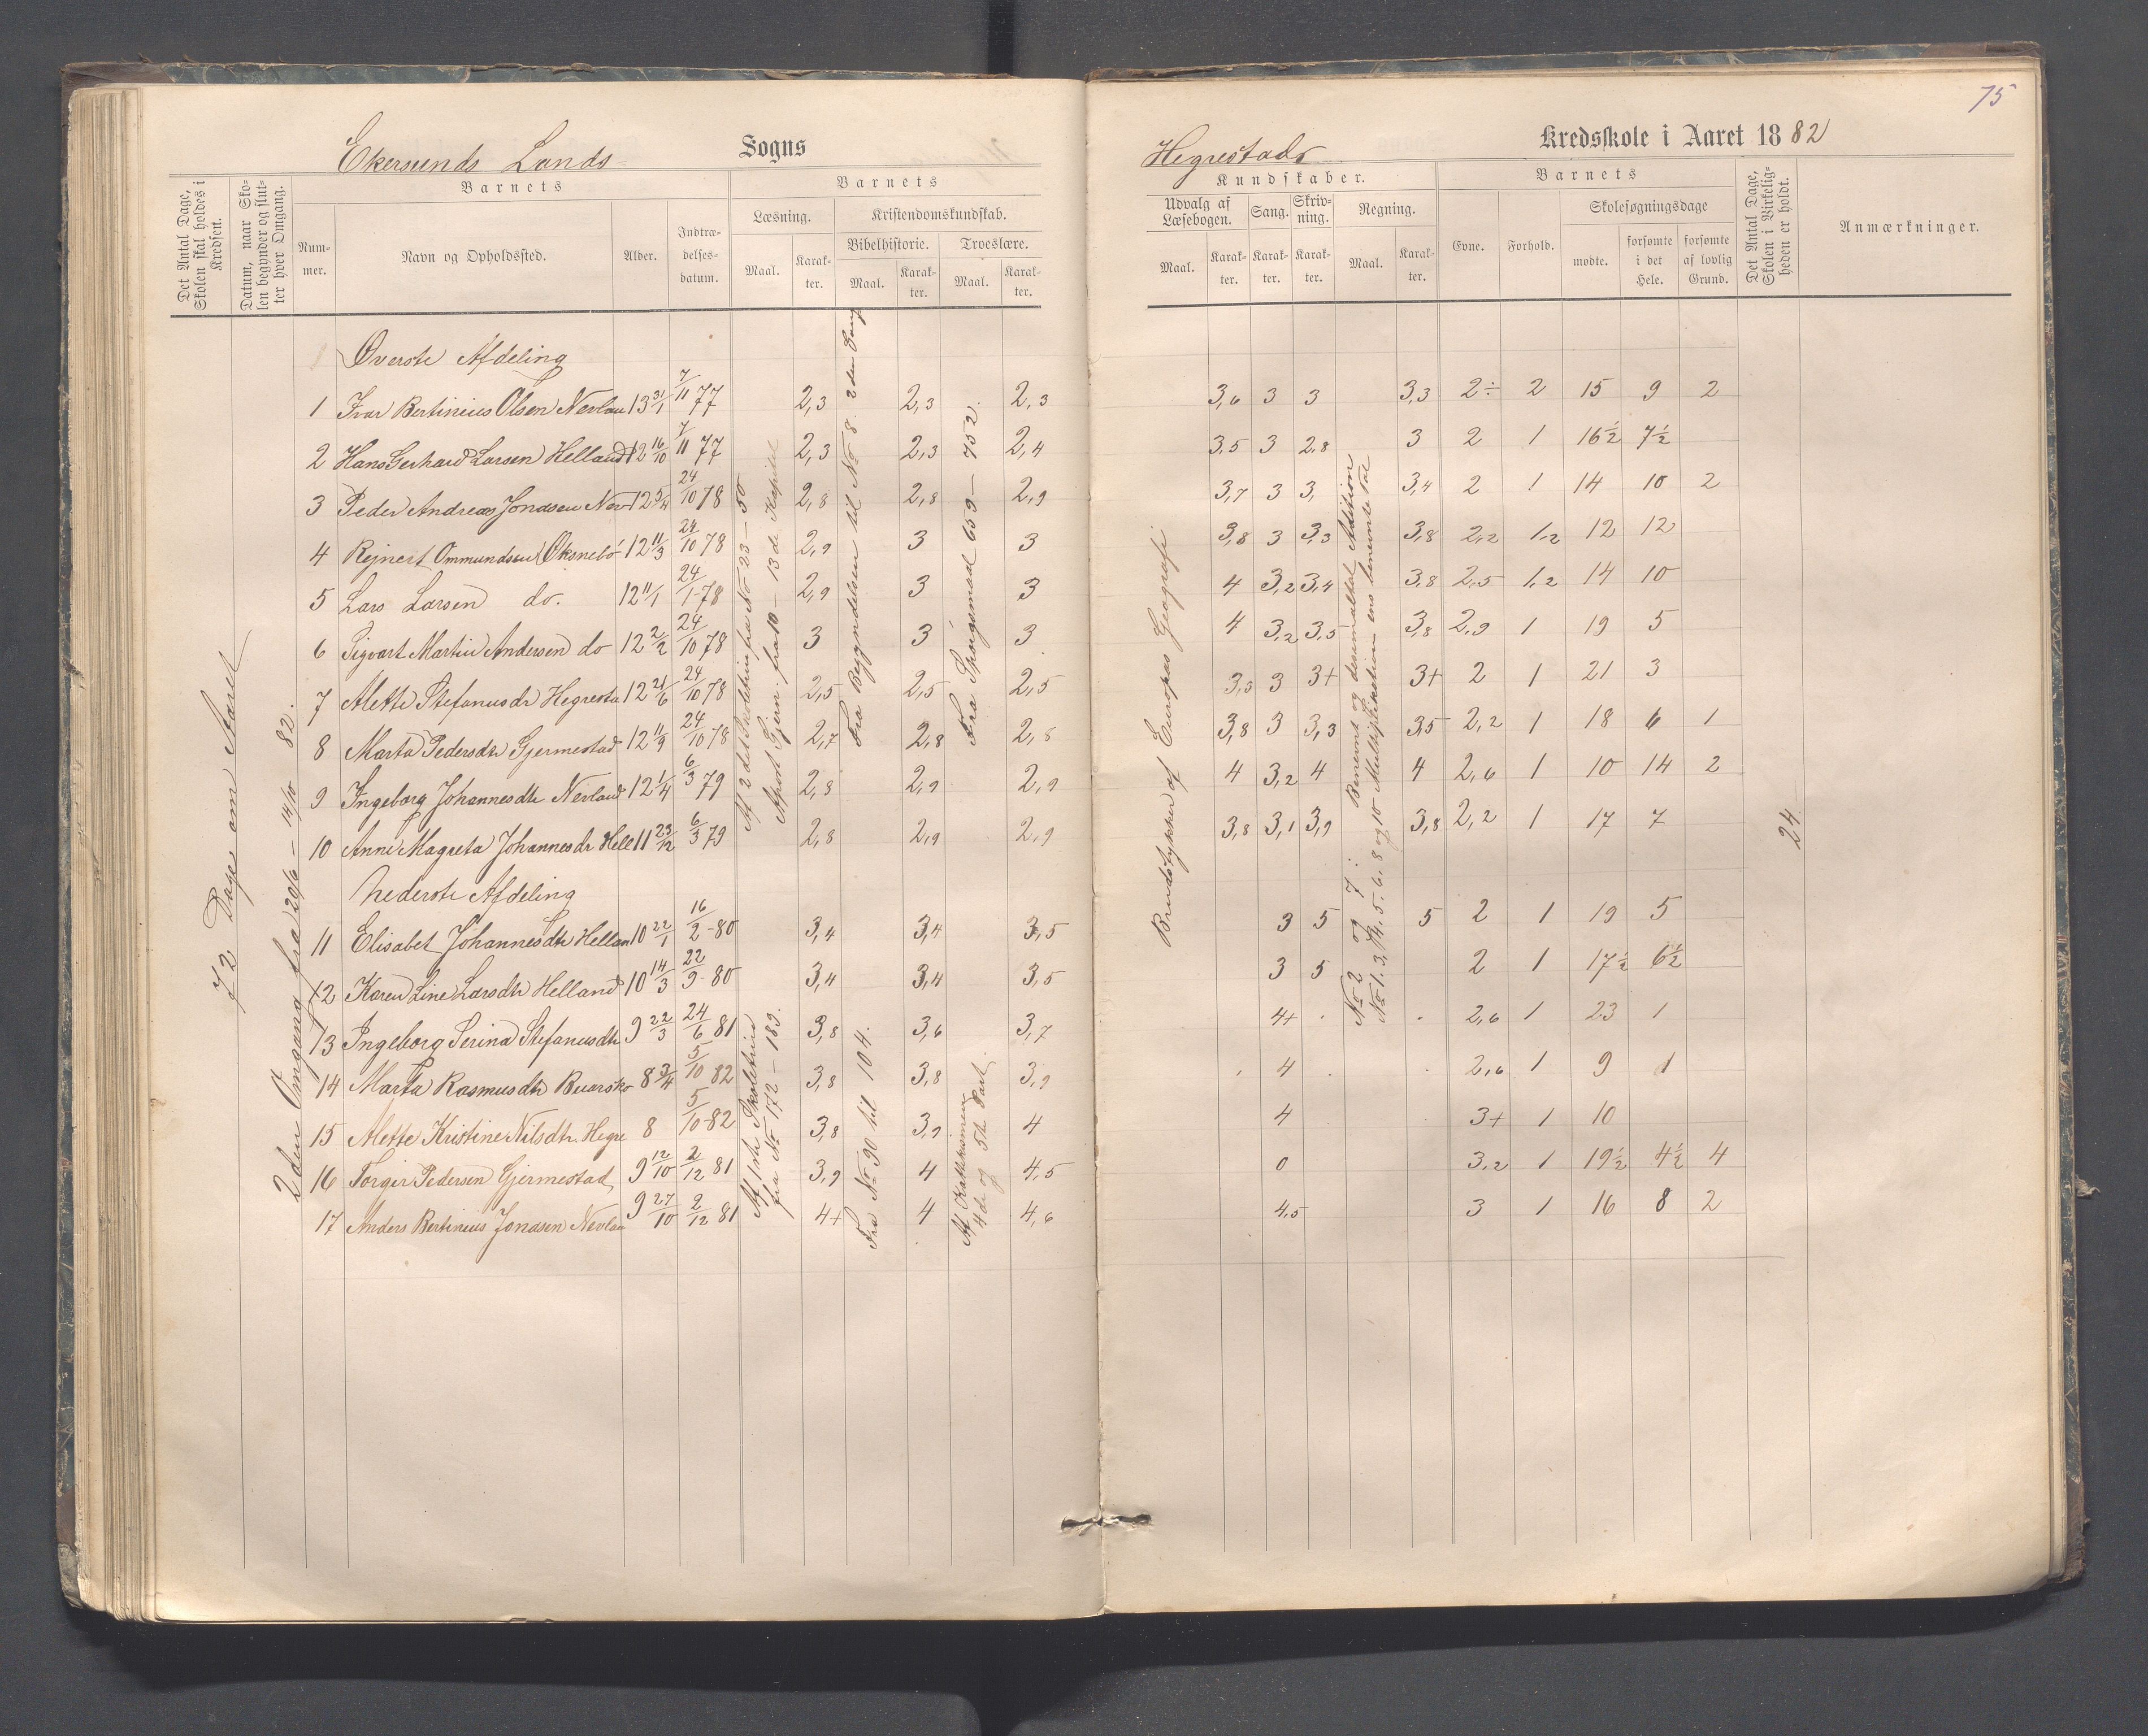 75
Ekersunds Lands Sogns
Hegrestads Kredsskole i Aaret 1882
Det Antal Dage, Skolen skal holdes i Kredsen.
Datum, naar Skolen begynder og slutter hver Omgang.
Barnets
Nummer.
Navn og Opholdssted.
Alder.
Indtrædelsesdatum.
Barnets
Læsning.
Maal.
Karakter.
Kristendomskundskab.
Bibelhistorie.
Maal.
Karakter.
Troeslære.
Maal.
Karakter.
Kundskaber.
Udvalg af Læsebogen.
Maal.
Karakter.
Sang.
Karakter.
Skrivning.
Karakter.
Regning.
Maal.
Karakter.
Barnets
Evne.
Forhold.
Skolesøgningsdage
mødte.
forsømte i det Hele.
forsømte af lovlig Grund.
Det Antal Dage, Skolen i Virkeligheden er holdt.
Anmærkninger.
72 Dage om Aaret
2den Omgang fra 20/6 – 14/10 82.
Øverste Afdeling
1 Ivar Bertinius Olsen Nevlan 13 31/1 7/11 77 2,3 2,3 2,3 3,6 3 3 3,3 2÷ 2 15 9 2
2 Hans Gerhard Larsen Helland 12 16/10 7/11 77 2,3 2,3 2,4 3,5 3 2,8 3 2 1 16½ 7½
3 Peder Andreas Jonasen Nev 12 5/4 24/10 78 2,8 2,8 2,9 3,7 3 3, 3,4 2 1 14 10 2
4 Rejnert Ommundsen Øksnebø 12 11/3 24/10 78 2,9 3 3 3,8 3 3,3 3,8 2,2 1,2 12 12
5 Lars Larsen do. 12 11/1 24/1 78 2,9 3 3 4 3,2 3,4 3,8 2,5 1,2 14 10
6 Sigvart Martin Andersen do 12 2/2 24/10 78 3 3 3 4 3,2 3,5 3,8 2,9 1 19 5
7 Mette Stefanusdr Hegresta 12 21/6 24/10 78 2,5 2,5 2,5 3,3 3 3+ 3+ 2 1 21 3
8 Marta Pedersdtr Gjermestad 12 11/9 24/10 78 2,7 2,8 2,8 3,8 3 3,3 3,5 2,2 1 18 6 1
9 Ingeborg Johannesdtr Nevland 12 1/4 6/3 79 2,8 2,9 2,9 4 3,2 4 4 2,6 1 10 14 2
10 Anne Magreta Johannesdr Hell 11 23/12 6/3 79 2,8 2,9 2,9 3,8 3,1 3,9 3,8 2,2 1 17 7
Nederste Afdeling
11 Elisabet Johannesdtr Hellan 10 22/1 16/2-80 3,4 3,4 3,5 3 5 5 2 1 19 5
12 Karen Line Larsdtr Helland 10 14/3 22/9-80 3,4 3,4 3,5 3 5 2 1 17½ 6½
13 Ingeborg Serina Stefanusdtr 9 22/3 24/6 81 3,8 3,6 3,7 4+ 2,6 1 23 1
14 Marta Rasmusdtr Buarsko 8 3/4 5/10 82 3,8 3,8 3,9 4 2,6 1 9 1
15 Mette Kristine Nilsdtr. Hegre 8 5/10-82 3,8 3,9 4 4 3+ 1 10
16 Torger Pedersen Gjermestad 9 12/10 2/12 81 3,9 4 4,5 0 3,2 1 19½ 4½ 4
17 Anders Bertinius Jonasen Nevlan 9 27/10 2/12 81 4+ 4 4,6 4,5 3 1 16 8 2
Af 2det Skoletrin fra No 23 – 50
Apost. Gjern. fra 10 – 13de Kapitel
Fra Begyndelsen til No 8. 2den
Fra Spørgsmaal 659 – 752.
Brudstykker af Europas Geografi
No 2 og 7: Benevnt og desimaltal Adition
No 1. 3, 4. 5. 6. 8 og 10 Multiplikation ens benevnte Tal
Af 1ste Skoletrin
fra No 172 – 189.
Fra No 90 til 104.
Af Katekismen
4de og 5te Part.
24